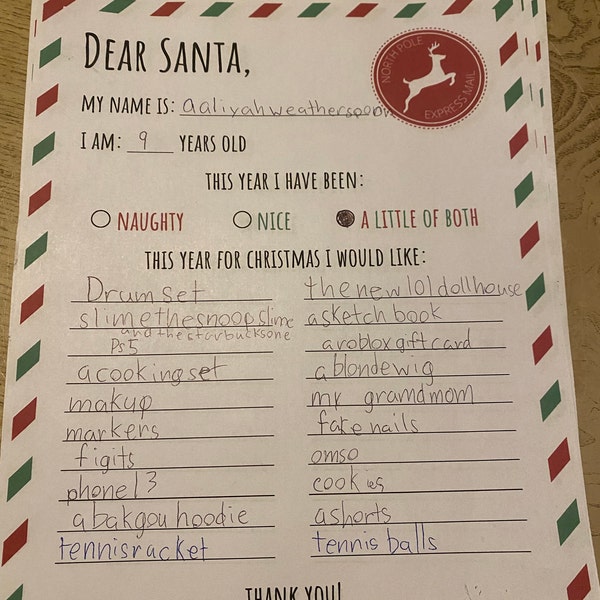 DEAR SANTA,
NORTH POLE
EXPRESS MAIL
MY NAME IS: aaliyahweatherspoon
I AM: 9 YEARS OLD
THIS YEAR I HAVE BEEN:
NAUGHTY NICE A LITTLE OF BOTH
THIS YEAR FOR CHRISTMAS I WOULD LIKE:
Drum set
slimethesnoopslime
andthestarbucksone
Ps5
acookingset
makup
markers
figits
phone13
abakgou hoodie
tennisracket
thenewloldollhouse
asketchbook
arobloxgiftcard
ablondewig
my gramdmom
fake nails
omso
cookies
ashorts
tennis balls
THANK YOU!